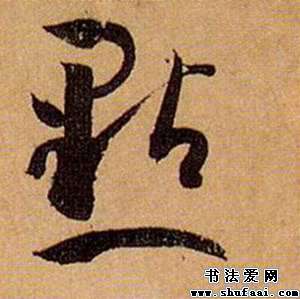 點
书法爱网
www.shufaai.com